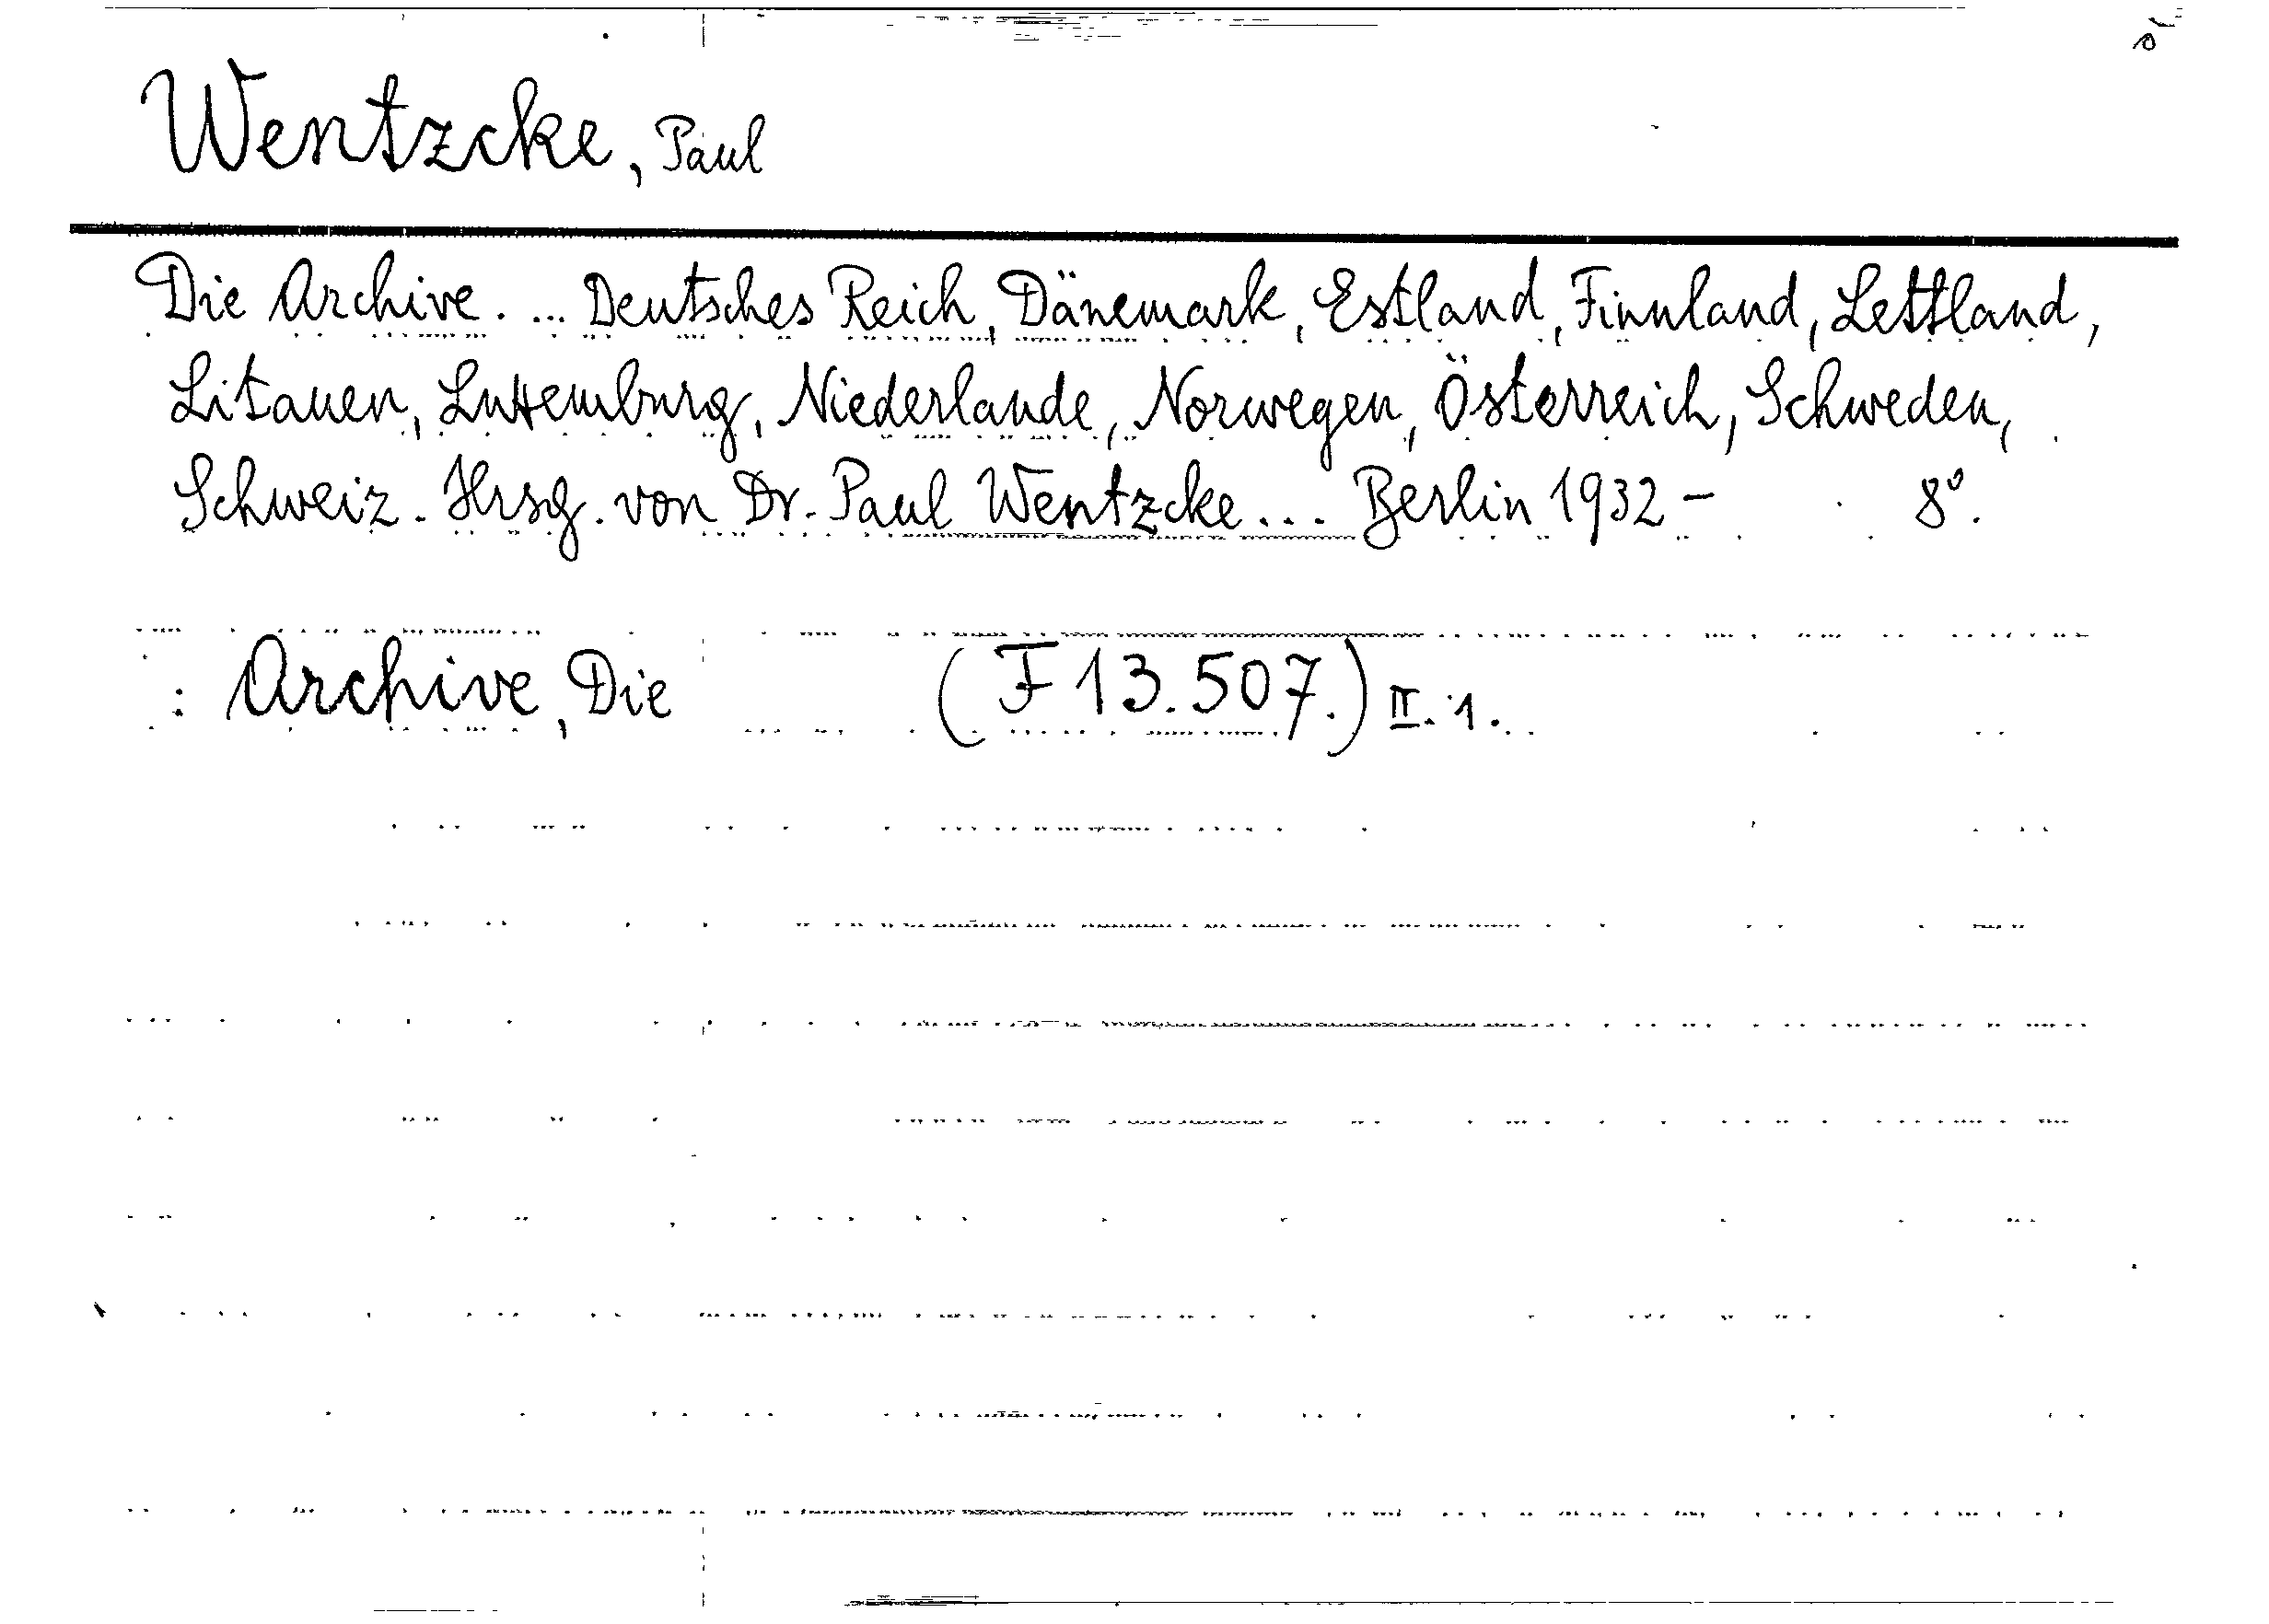 Wentzcke, Paul
Die Archive. ... Deutsches Reich, Dänemark, Estland, Finnland, Lettland,
Litauen, Luxemburg, Niederlande, Norwegen, Österreich, Schweden,
Schweiz. Hrsg. von Dr. Paul Wentzcke ... Berlin 1932 – 8°.
: Archive, Die (F 13.507.) II. 1.